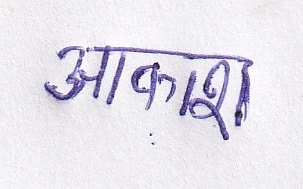 आकाश